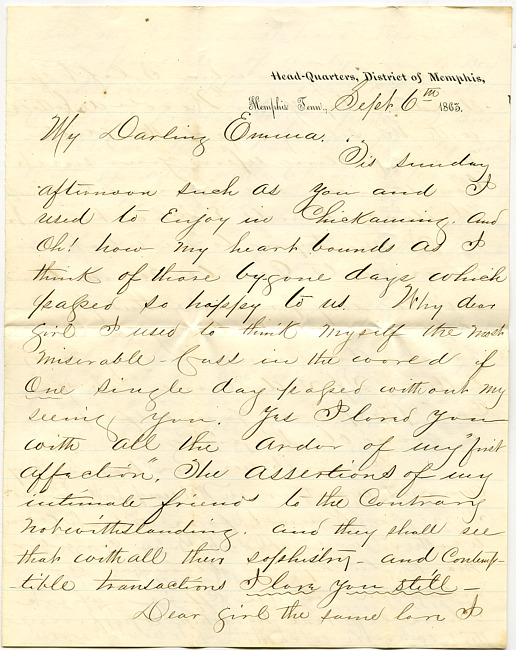 Head-Quarters, District of Memphis,
Memphis Tenn., Sept. 6th 1863.
My Darling Emma.
Tis sunday
afternoon such as you and I
used to Enjoy in Chickaming. and
Oh! how my heart bounds as I
think of those bygone days which
passed so happy to us. Why dear
girl I used to think myself the most
miserable - Cuss in the world if
One single day passed without my
seeing you. Yes I loved you
with all the Ardor of my "first
affection", The assertions of my
intimate friends to the Contrary
notwithstanding. and they shall see
that with all their sophistry - and Contemp-
-tible transactions I love you still -
Dear girl the same love I